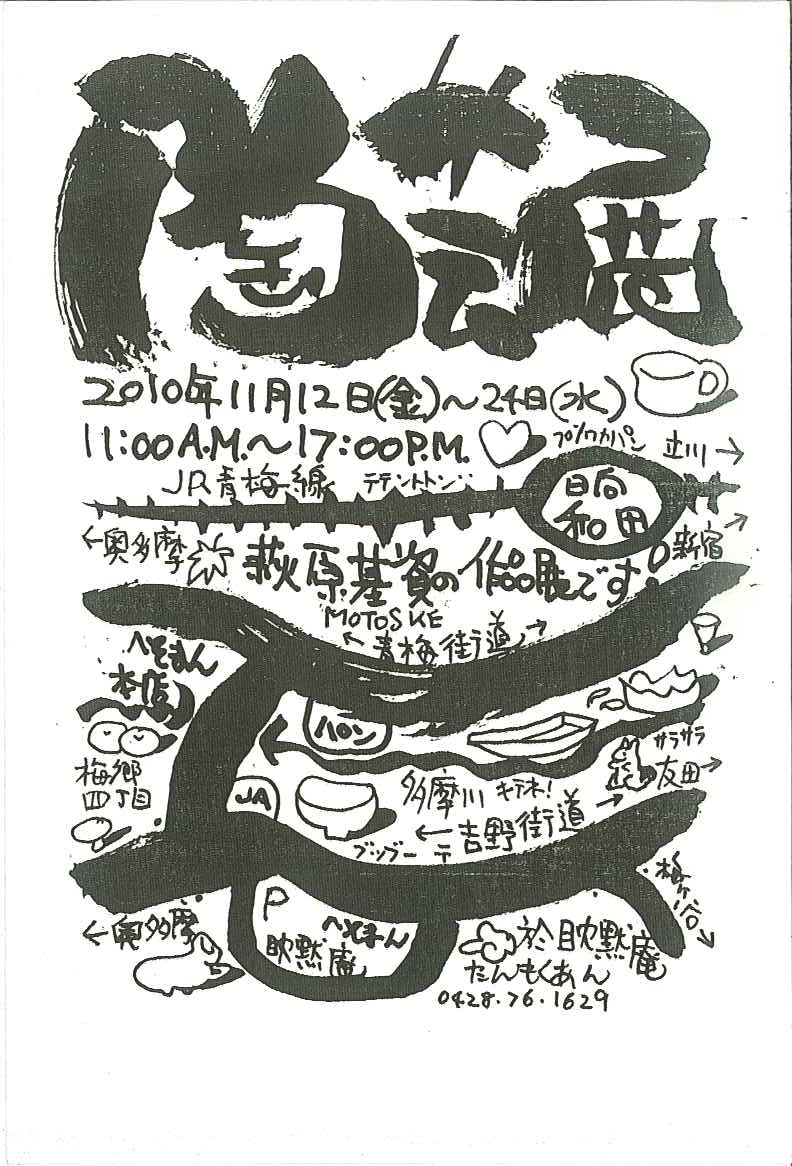 陶
2010年11月12日(金)～24日(水)
11:00A.M.～17:00P.M.
プツワカパン
立川→
JR青梅線
テテントトン‥
日向
和田
←奥多摩
新宿
萩原基資の作品展です!
MOTOSKE
←青梅街道→
へそまん
本店
パン
梅郷
四丁目
JA
多摩川 キテネ!
サラサラ
友田→
←吉野街道→
ブツブー
梅ヶ谷
←奥多摩
P
へそまん
眈黙庵
於眈黙庵
たんもくあん
0428.76.1629